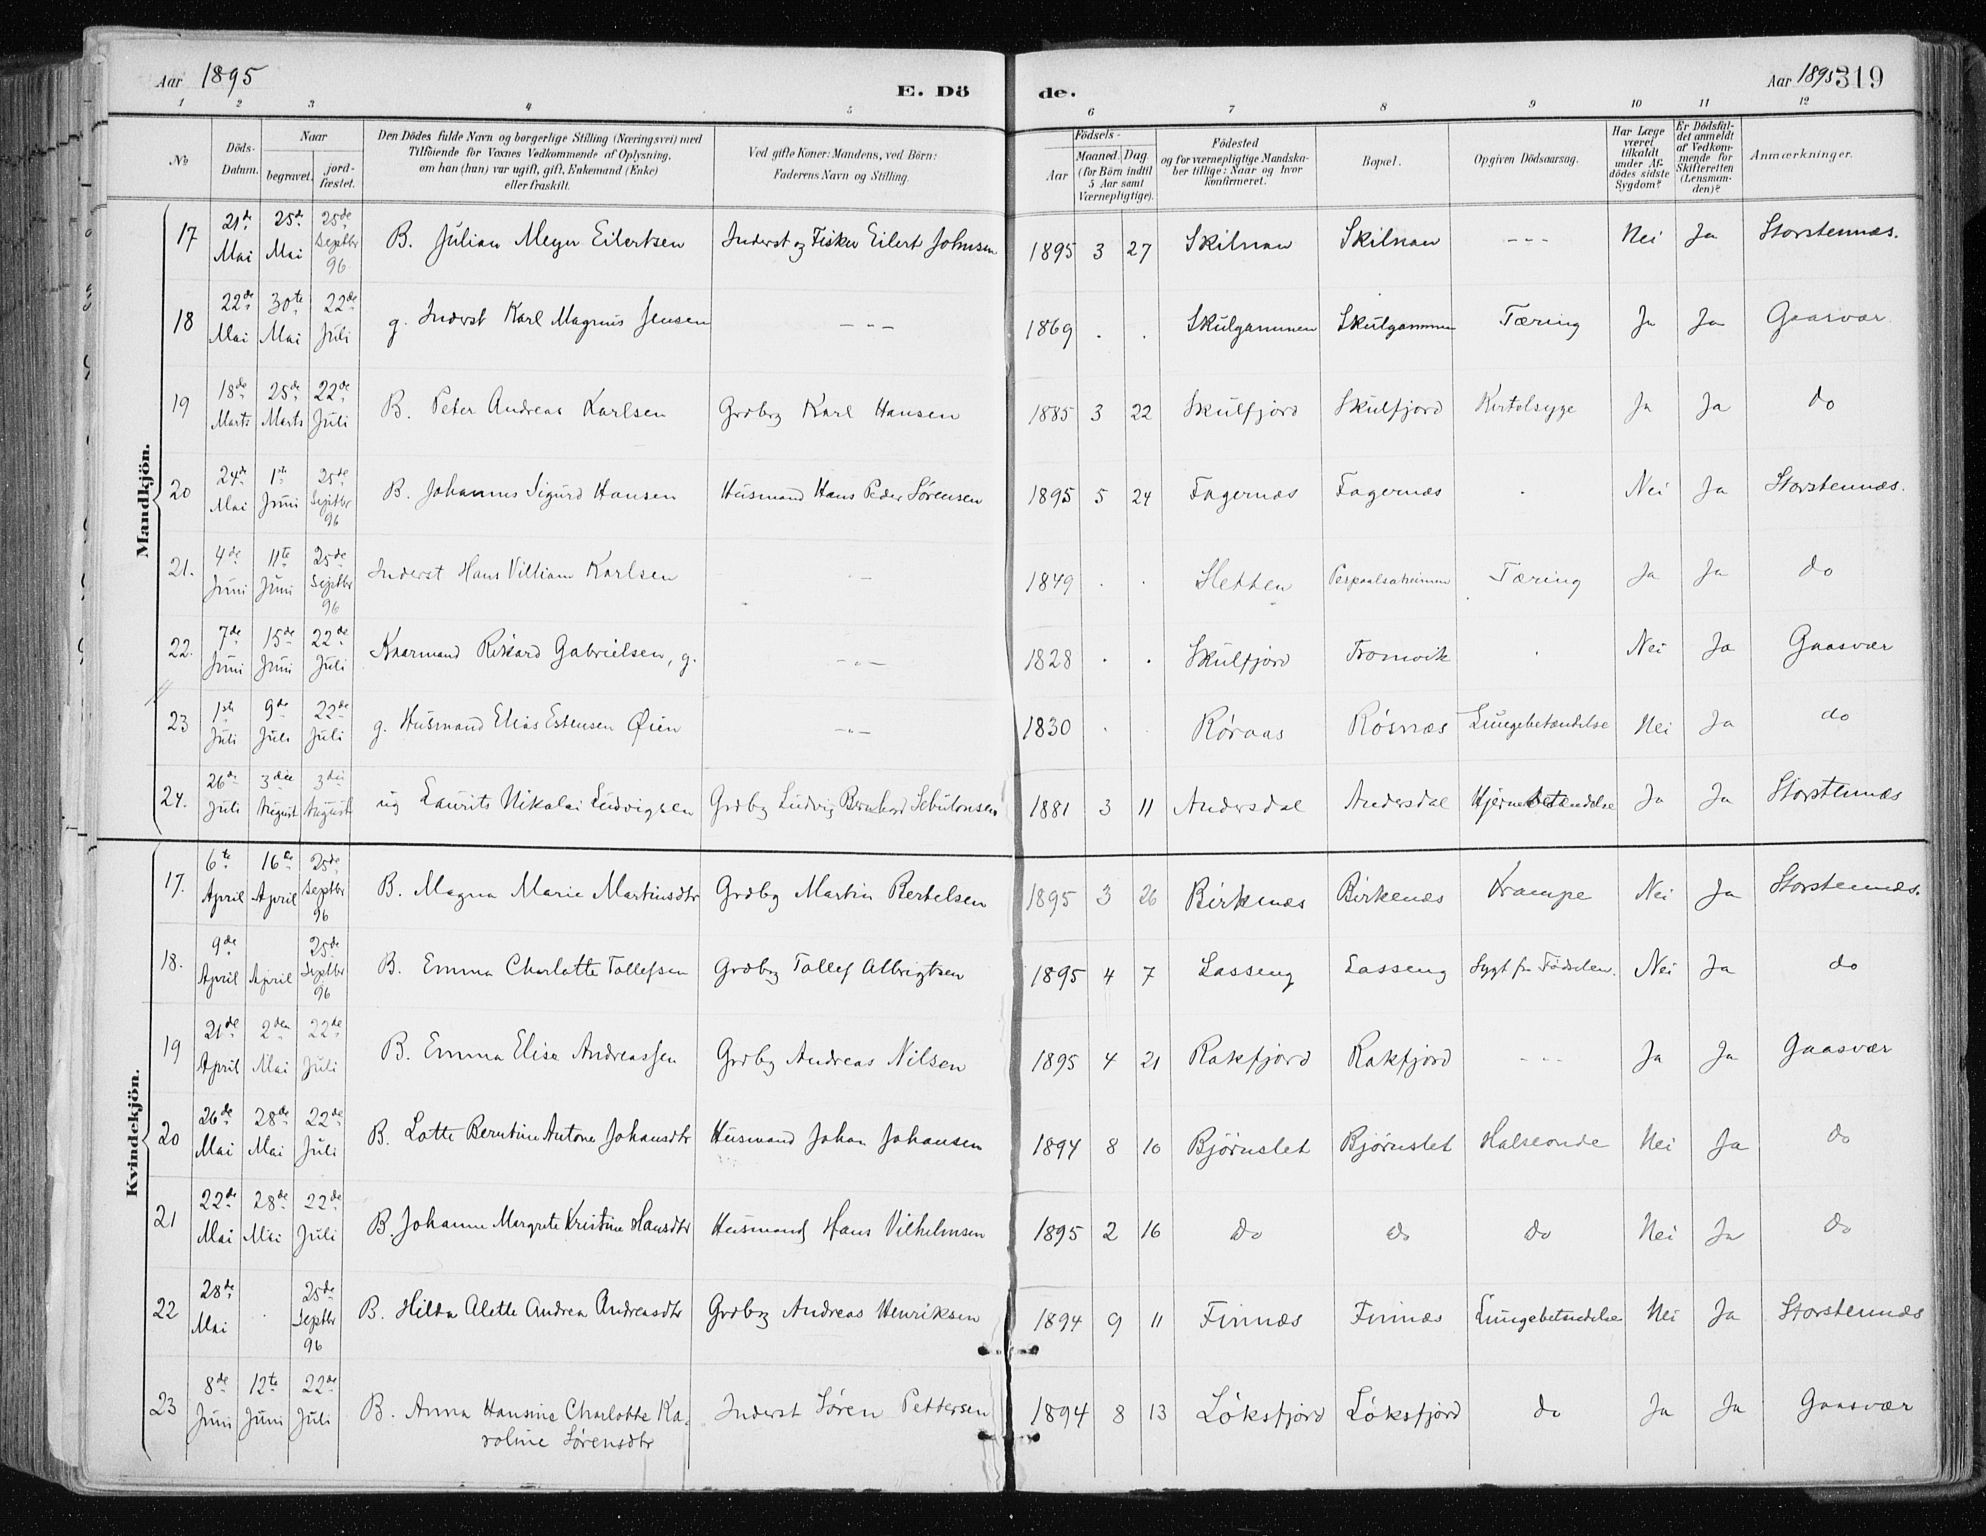 Aar 1895
E. Dö
de.
Aar 1895 319
1 2 3 4 5 6 7 8 9 10 11 12
No
Döds-Datum.
Naar
begravet.
jord-fæstet.
Den Dödes fulde Navn og borgerlige Stilling (Næringsvei) med
Tilföiende for Voxnes Vedkommende af Oplysning,
om han (hun) var ugift, gift, Enkemand (Enke)
eller fraskilt.
Ved gifte Koner: Mandens, ved Börn:
Faderens Navn og Stilling.
Födsels-
Aar
Maaned. Dag.
(for Börn indtil
5 Aar samt
Værnepligtige).
Födested
og for værnepligtige Mandska-
ber tillige: Naar og hvor
konfirmeret.
Bopæl.
Opgiven Dödsaarsag.
Har Læge
været
tilkaldt
under Af-
dödes sidste
Sygdom?
Er Dödsfal-
det anmeldt
af Vedkom-
mende for
Skifteretten
(Lensman-
den)?
Anmærkninger.
Mandkjön.
17 21de Mai 25de Mai 25de Septbr 96 B. Julian Meyer Eilertsen Inderst og Fisker Eilert Johnsen 1895 3 27 Skilnan Skilnan - - - Nei Ja Storstennæs.
18 22de Mai 30te Mai 22de Juli g. Inderst Karl Magnus Jensen - " - 1869 . . Skulgammen Skulgammen Tæring Ja Ja Gaasvær
19 18de Marts 25de Marts 22de Juli B. Peter Andreas Karlsen Grdbg Karl Hansen 1885 3 22 Skulfjord Skulfjord Kirtelsyge Ja Ja do
20 24de Mai 1ste Juni 25de Septbr 96 B. Johannes Sigurd Hansen Husmand Hans Peder Sørensen 1895 5 24 Fagernæs Fagernæs . Nei Ja Storstennæs.
21. 4de Juni 11te Juni 25de Septbr 96 Inderst Hans Villiam Karlsen - " - 1849 . . Sletten Tæring Ja Ja do
22. 7de Juni 15de Juni 22de Juli Kaarmand Rikard Gabrielsen, g. - " - 1828 . . Skulfjord Tromvik . Nei Ja Gaasvær
23 1ste Juli 9de Juli 22de Juli g. Husmand Elias Estensen Øien - " - 1830 . . Røraas Røsnæs Lungebetændelse Nei Ja do
24. 26de Juli 3die August 3die August ug Laurits Nikolai Ludvigsen Grdbg Ludvig Bernhard Sebulonsen 1881 3 11 Andersdal Andersdal Hjernebetændelse Ja Ja Storstennæs
Kvindekjön.
17. 6te April 16de April 25de Septbr 96 B. Magna Marie Martinsdtr Grdbg Martin Bertelsen 1895 3 26 Birkenæs Birkenæs Krampe Nei Ja Storstennæs.
18. 9de April April 25de Septbr 96 B. Emma Charlotte Tollefsen Grdbg Tollef Albrigtsen 1895 4 7 Lasseng Lasseng Sygt fra Fødselen. Nei Ja do
19 21de April 2den Mai 22de Juli B. Emma Elise Andreassen Grdbg Andreas Nilsen 1895 4 21 Rakfjord Rakfjord - - - Ja Ja Gaasvær
20 26de Mai 28de Mai 22de Juli B. Lotte Berntine Antone Johansdtr Husmand Johan Johansen 1894 8 10 Bjørnslet Bjørnslet Halseonde Nei Ja do
21 22de Mai 28de Mai 22de Juli B. Johanne Margrete Kristine Hansdtr Husmand Hans Vilhelmsen 1895 2 16 Do do Do Nei Ja do
22 28de Mai . 25de Septbr 96 B. Hilda Alette Andrea Andreasdtr Grdbg Andreas Henriksen 1894 9 11 Finnæs Finnæs Lungebetændelse Nei Ja Storstennæs
23 8de Juni 12te Juni 22de Juli B. Anna Hansine Charlotte Ka- Inderst Søren Pettersen 1894 8 13 Løksfjord Løksfjord do Ja Ja Gaasvær
roline Sørensdtr